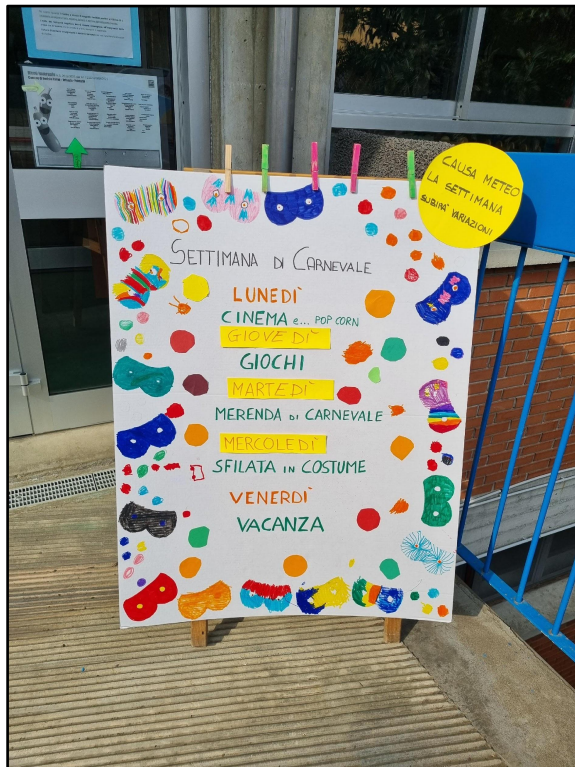 CAUSA METEO
LA SETTIMANA
SUBIRA' VARIAZIONI
SETTIMANA DI CARNEVALE
LUNEDÌ
CINEMA e... POP CORN
GIOVEDÌ
GIOCHI
MARTEDÌ
MERENDA di CARNEVALE
MERCOLEDÌ
SFILATA IN COSTUME
VENERDÌ
VACANZA